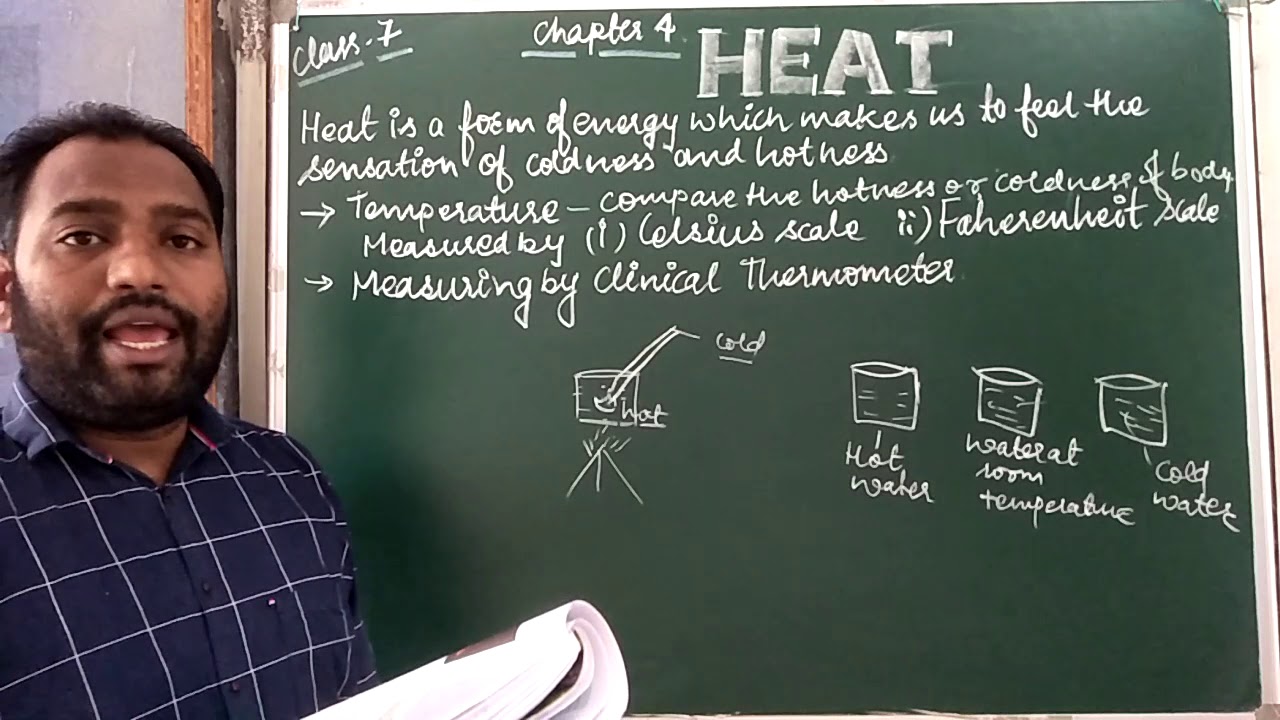 Class-7
Chapter 4
HEAT
Heat is a form of energy which makes us to feel the
sensation of coldness and hotness
→ Temperature – compare the hotness or coldness of body
Measured by (i) Celsius scale ii) Faherenheit scale
→ Measuring by Clinical Thermometer
cold
hot
Hot
water
water at
room
temperature
cold
water